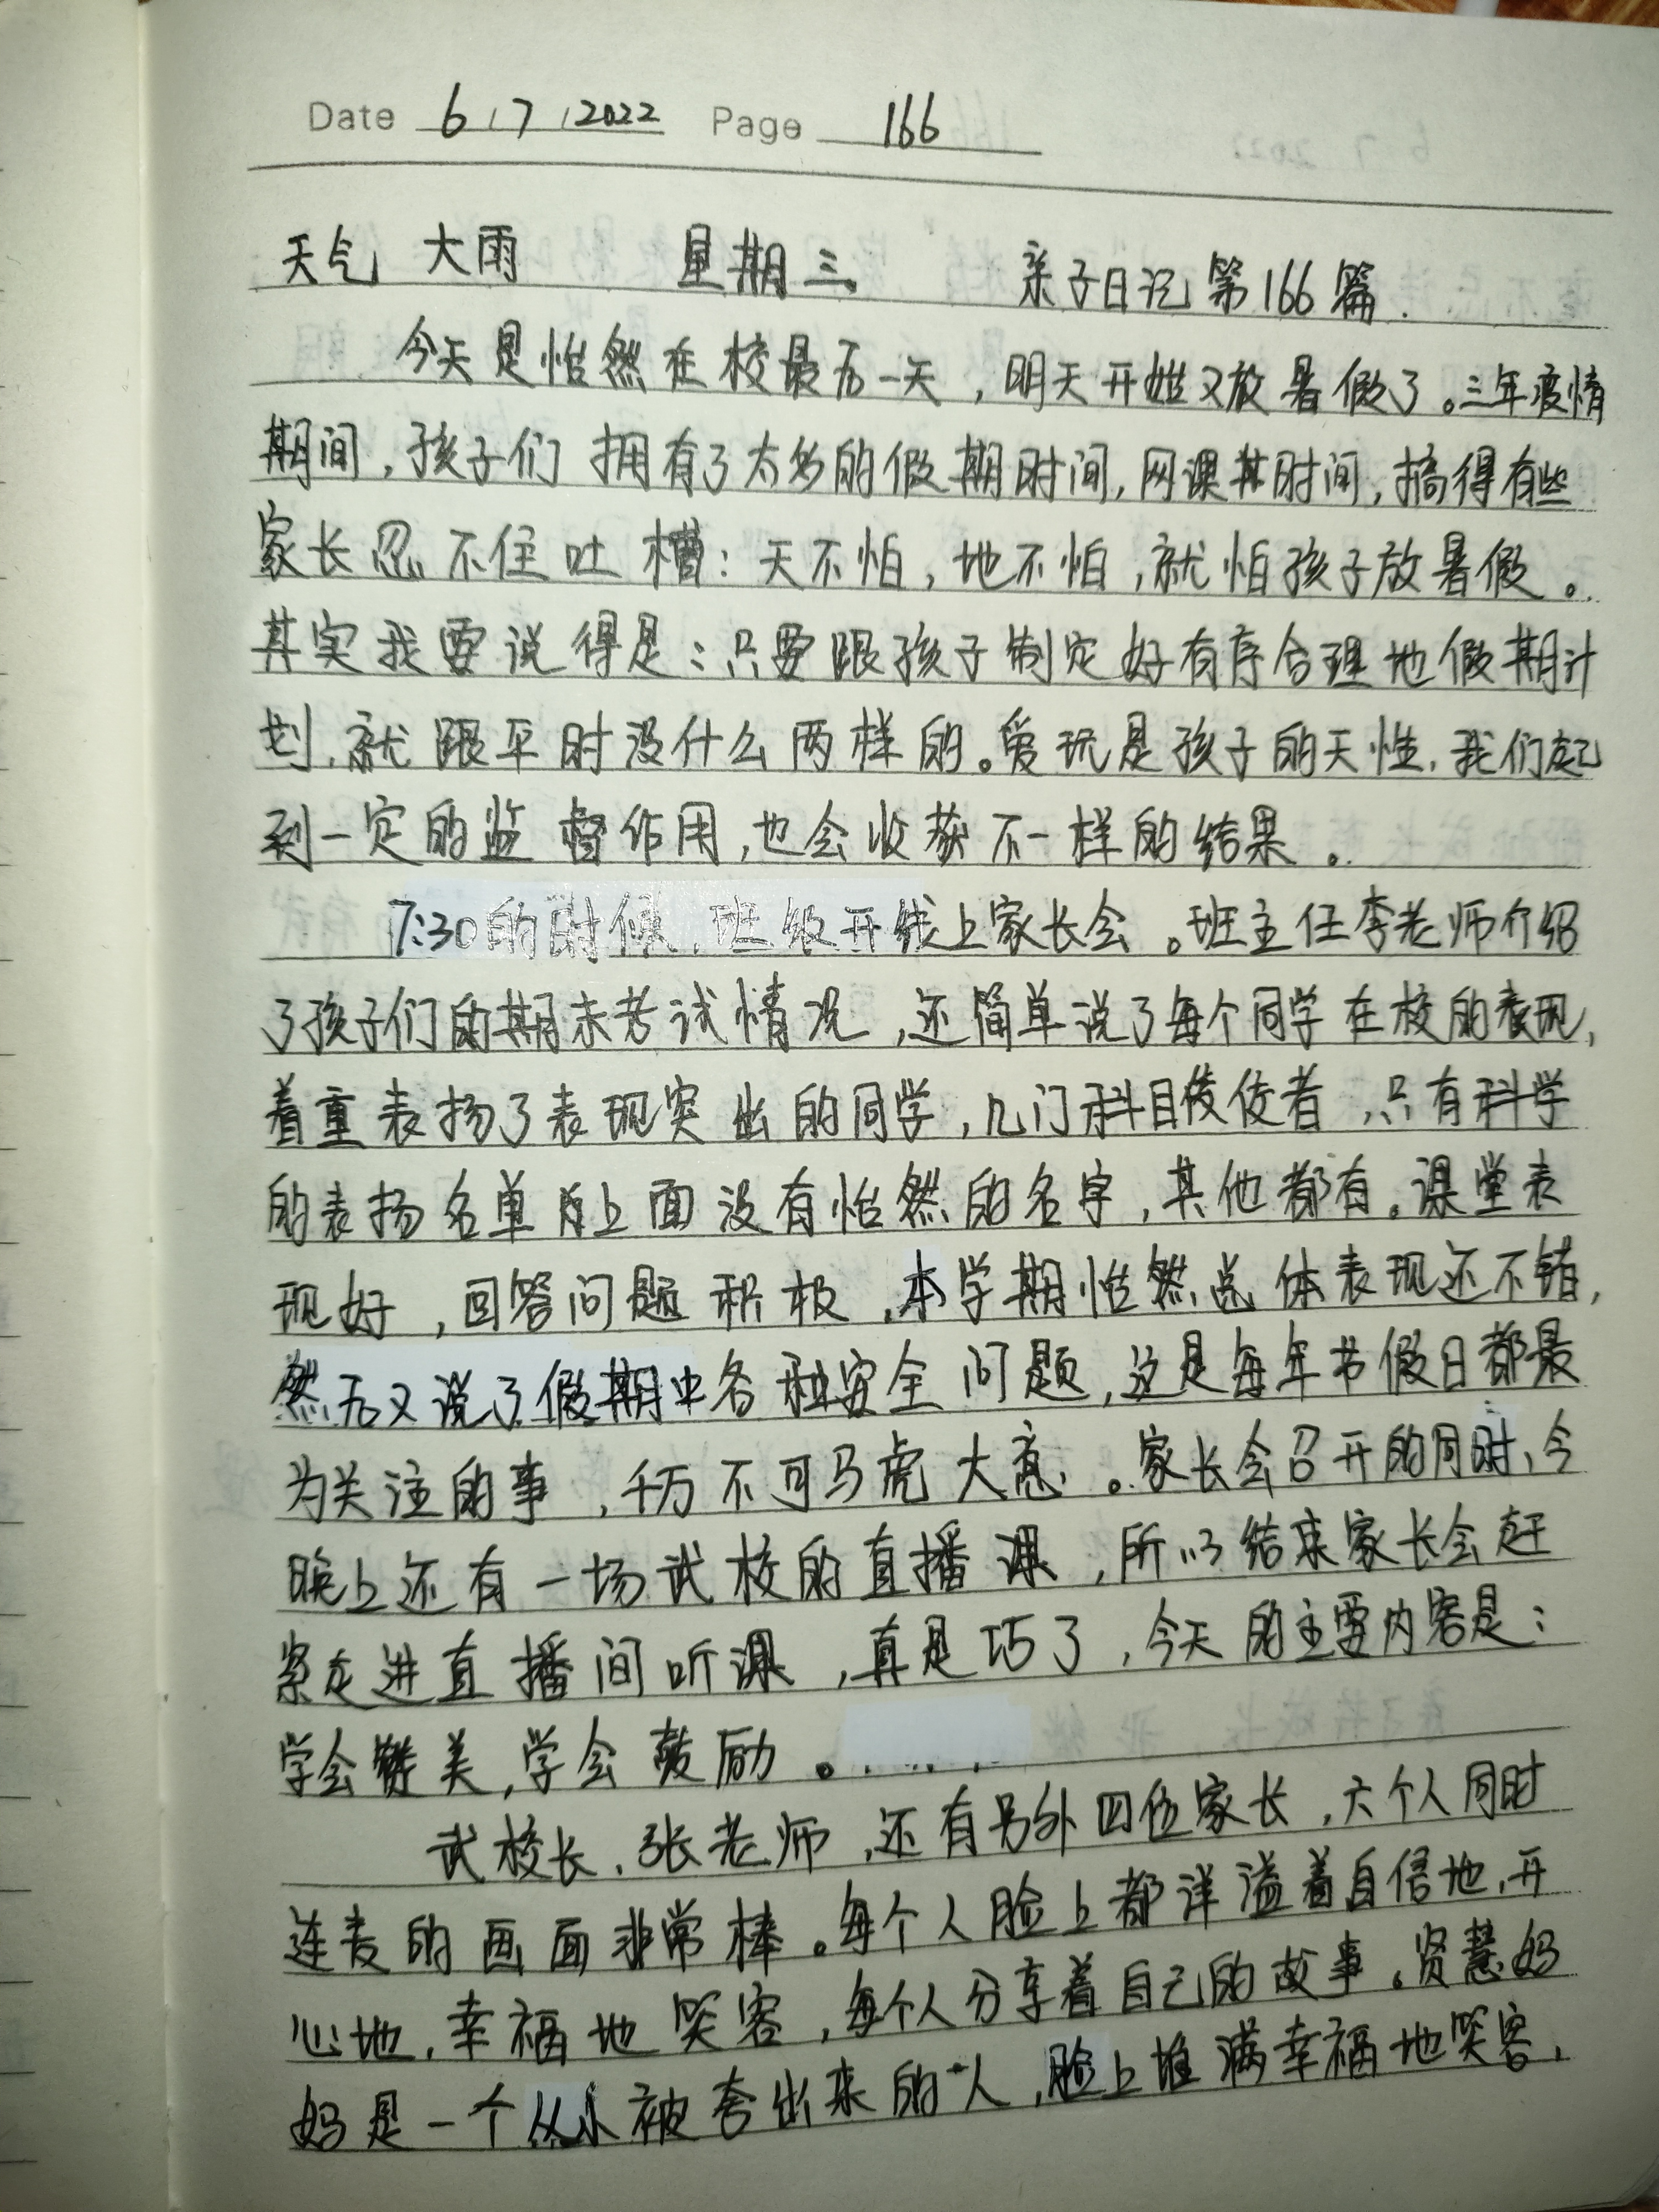 Date 6/7/2022 Page 166
天气 大雨 星期三 亲子日记第166篇.
今天是怡然在校最后一天，明天开始又放暑假了。三年疫情
期间，孩子们拥有了太多的假期时间，网课其时间，搞得有些
家长忍不住吐槽：天不怕，地不怕，就怕孩子放暑假。
其实我要说得是：只要跟孩子制定好有序合理地假期计
划，就跟平时没什么两样的。爱玩是孩子的天性，我们起
到一定的监督作用，也会收获不一样的结果。
7:30的时候，班级开线上家长会。班主任李老师介绍
了孩子们的期末考试情况，还简单说了每个同学在校的表现，
着重表扬了表现突出的同学，几门科目佼佼者，只有科学
的表扬名单上面没有怡然的名字，其他都有。课堂表
现好，回答问题积极，本学期怡然总体表现还不错，
然后又说了假期中各种安全问题，这是每年节假日都最
为关注的事，千万不可马虎大意。家长会召开的同时，今
晚上还有一场武校的直播课，所以结束家长会赶
紧走进直播间听课，真是巧了，今天的主要内容是：
学会赞美，学会鼓励。
武校长，张老师，还有另外四位家长，六个人同时
连麦的画面非常棒。每个人脸上都洋溢着自信地，开
心地，幸福地笑容，每个人分享着自己的故事。贤慧妈
妈是一个从小被夸出来的人，脸上堆满幸福地笑容，